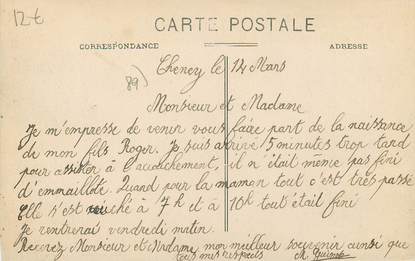 12€
CARTE POSTALE
CORRESPONDANCE
ADRESSE
89)
Cheney le 14 Mars
Monsieur et Madame
Je m'empresse de venir vous faire part de la naissance
de mon fils Roger. Je suis arrivé 5 minutes trop tard
pour assister à l'accouchement, il n'était même pas fini
d'emmailloté. Quand pour la maman tout c'est très passé
Elle s'est couché à 7h et à 10h tout était fini
Je rentrerai vendredi matin.
Recevez Monsieur et Madame mon meilleur souvenir ainsi que
tous mes respects